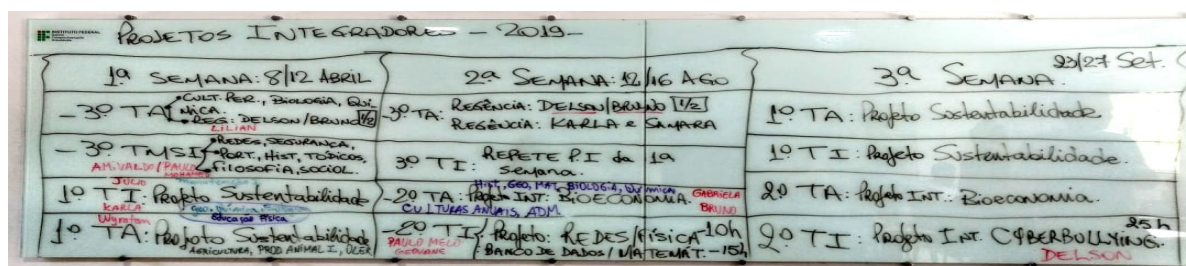 INSTITUTO FEDERAL
PROJETOS INTEGRADORES - 2019 -
1ª SEMANA: 8/12 ABRIL
- 3º TA
• CULT. PER., BIOLOGIA, QUÍ-
MICA.
• REG: DELSON/BRUNO 1/2
LILIAN
- 3º TMSI
• REDES, SEGURANÇA,
PORT., HIST, TÓPICOS,
FILOSOFIA, SOCIOL.
AMIVALDO/PAULO
JULIO
1º TI Projeto Sustentabilidade
KARLA
Educação Física
1º TA: Projeto Sustentabilidade
AGRICULTURA, PROD. ANIMAL I, OLER
2ª SEMANA: 12/16 AGO
- 3º TA: REGÊNCIA: DELSON/BRUNO 1/2
REGÊNCIA: KARLA e SAMARA
3º TI: REPETE P.I da 1ª
semana.
HIST, GEO, MAT, BIOLOGIA, Química
- 2º TA: Projeto INT: BIOECONOMIA.
CULTURAS ANUAIS, ADM.
GABRIELA
BRUNO
- 2º TI: Projeto: REDES/FÍSICA - 10h
PAULO MELO
BANCO DE DADOS/MATEMÁT. - 15h
3ª SEMANA. 23/27 Set.
1º TA: Projeto Sustentabilidade
1º TI: Projeto Sustentabilidade.
2º TA: Projeto INT.: Bioeconomia.
2º TI Projeto INT. CYBERBULLYING. 25h
DELSON